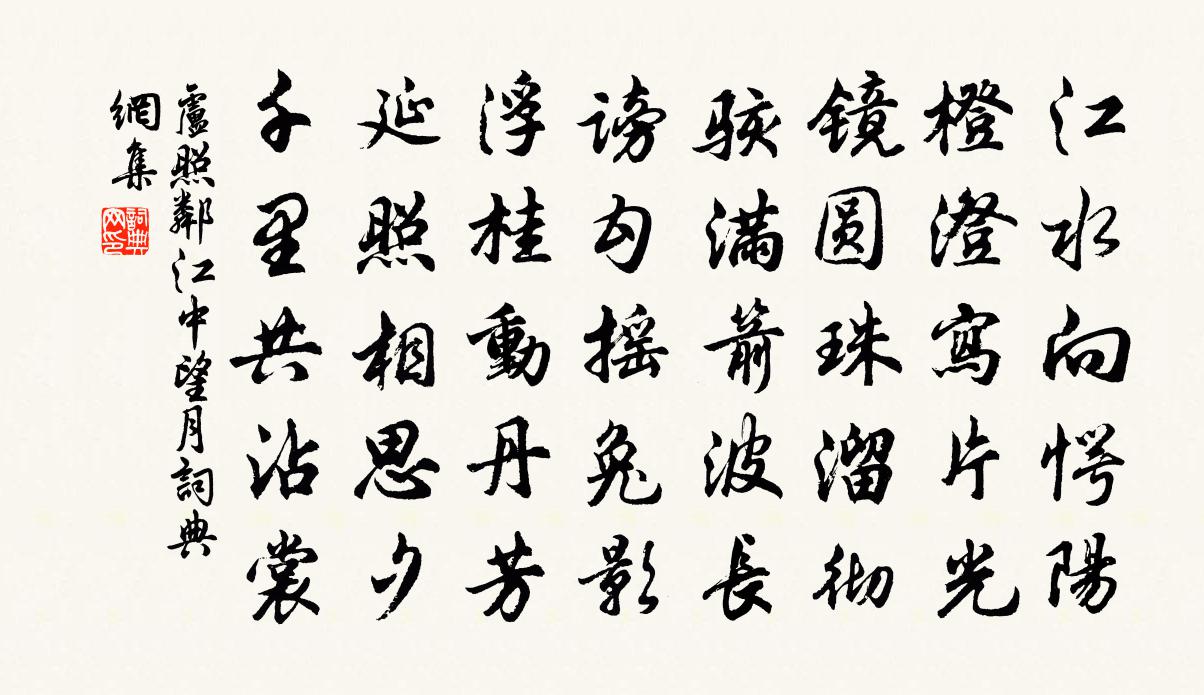 江水向愕陽
橙澄寫片光
镜圆珠溜彻
骇滿箭波長
谤勾摇兔影
浮桂動丹芳
延照相思夕
千里共沾裳
盧照鄰江中望月詞典
網集
詞典
网印